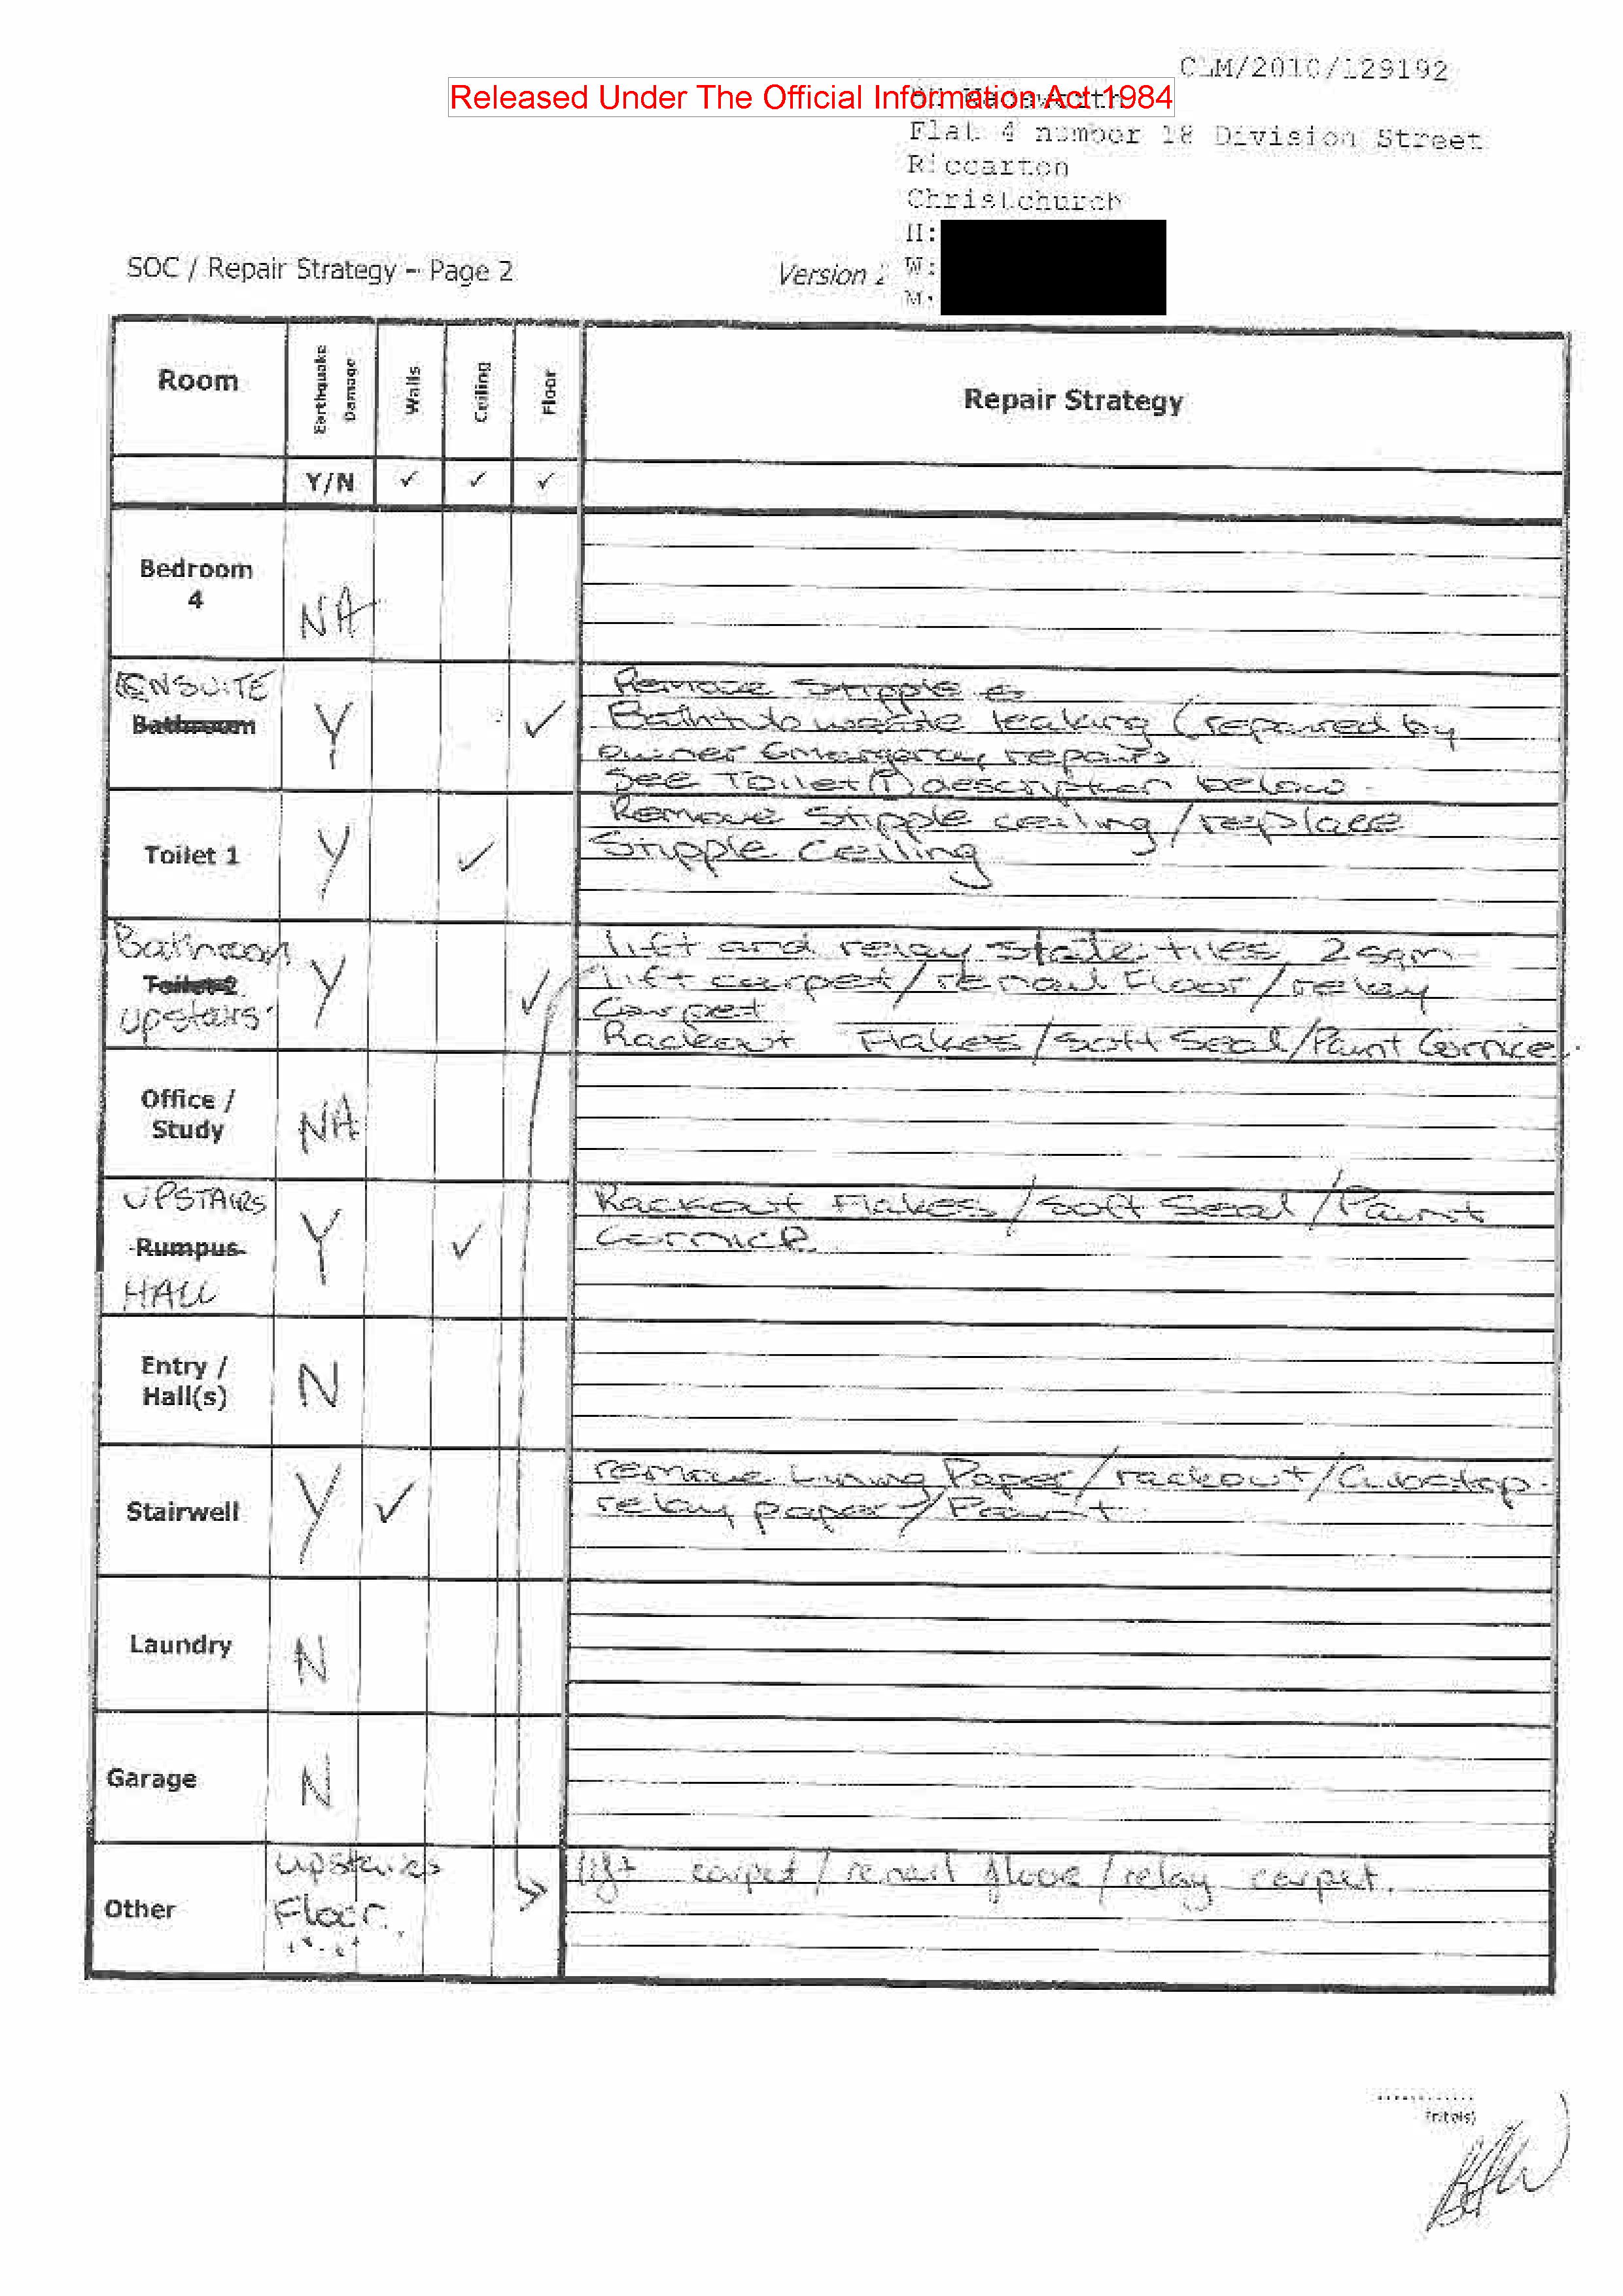 CLM/2010/129192
Released Under The Official Information Act 1984
Flat 4 number 18 Division Street
Riccarton
Christchurch
H:
SOC / Repair Strategy - Page 2
Version 2 W:
M:
Room Earthquake Damage Walls Ceiling Floor Repair Strategy
Y/N ✓ ✓ ✓
Bedroom
4
NA
ENSUITE
Bathroom Y ✓
Remove Stipple &
Bathtub waste leaking (repaired by
owner Emergency repairs
See Toilet (1) description below
Toilet 1 Y ✓
Remove Stipple ceiling / replace
Stipple Ceiling
Bathroom
Toilet 2 Y ✓
upstairs
lift and relay slate tiles 2 sqm
lift carpet / renail Floor / relay
Carpet
Rackout Flakes / Soft Seal / Paint Cornice
Office /
Study NA
UPSTAIRS
Rumpus Y ✓
HALL
Rackout Flakes / Soft Seal / Paint
Cornice
Entry /
Hall(s) N
Stairwell Y ✓
remove Lining Paper / rackout /
relay paper / Paint
Laundry N
Garage N
Other upstairs
Floor
lift carpet / renail floor / relay carpet.